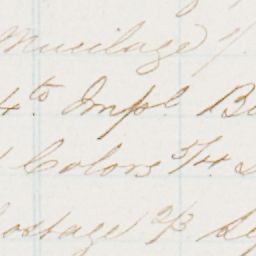 Mucilage 1/.
4to Impl. B
Colors 5/4.
Postage 2/3